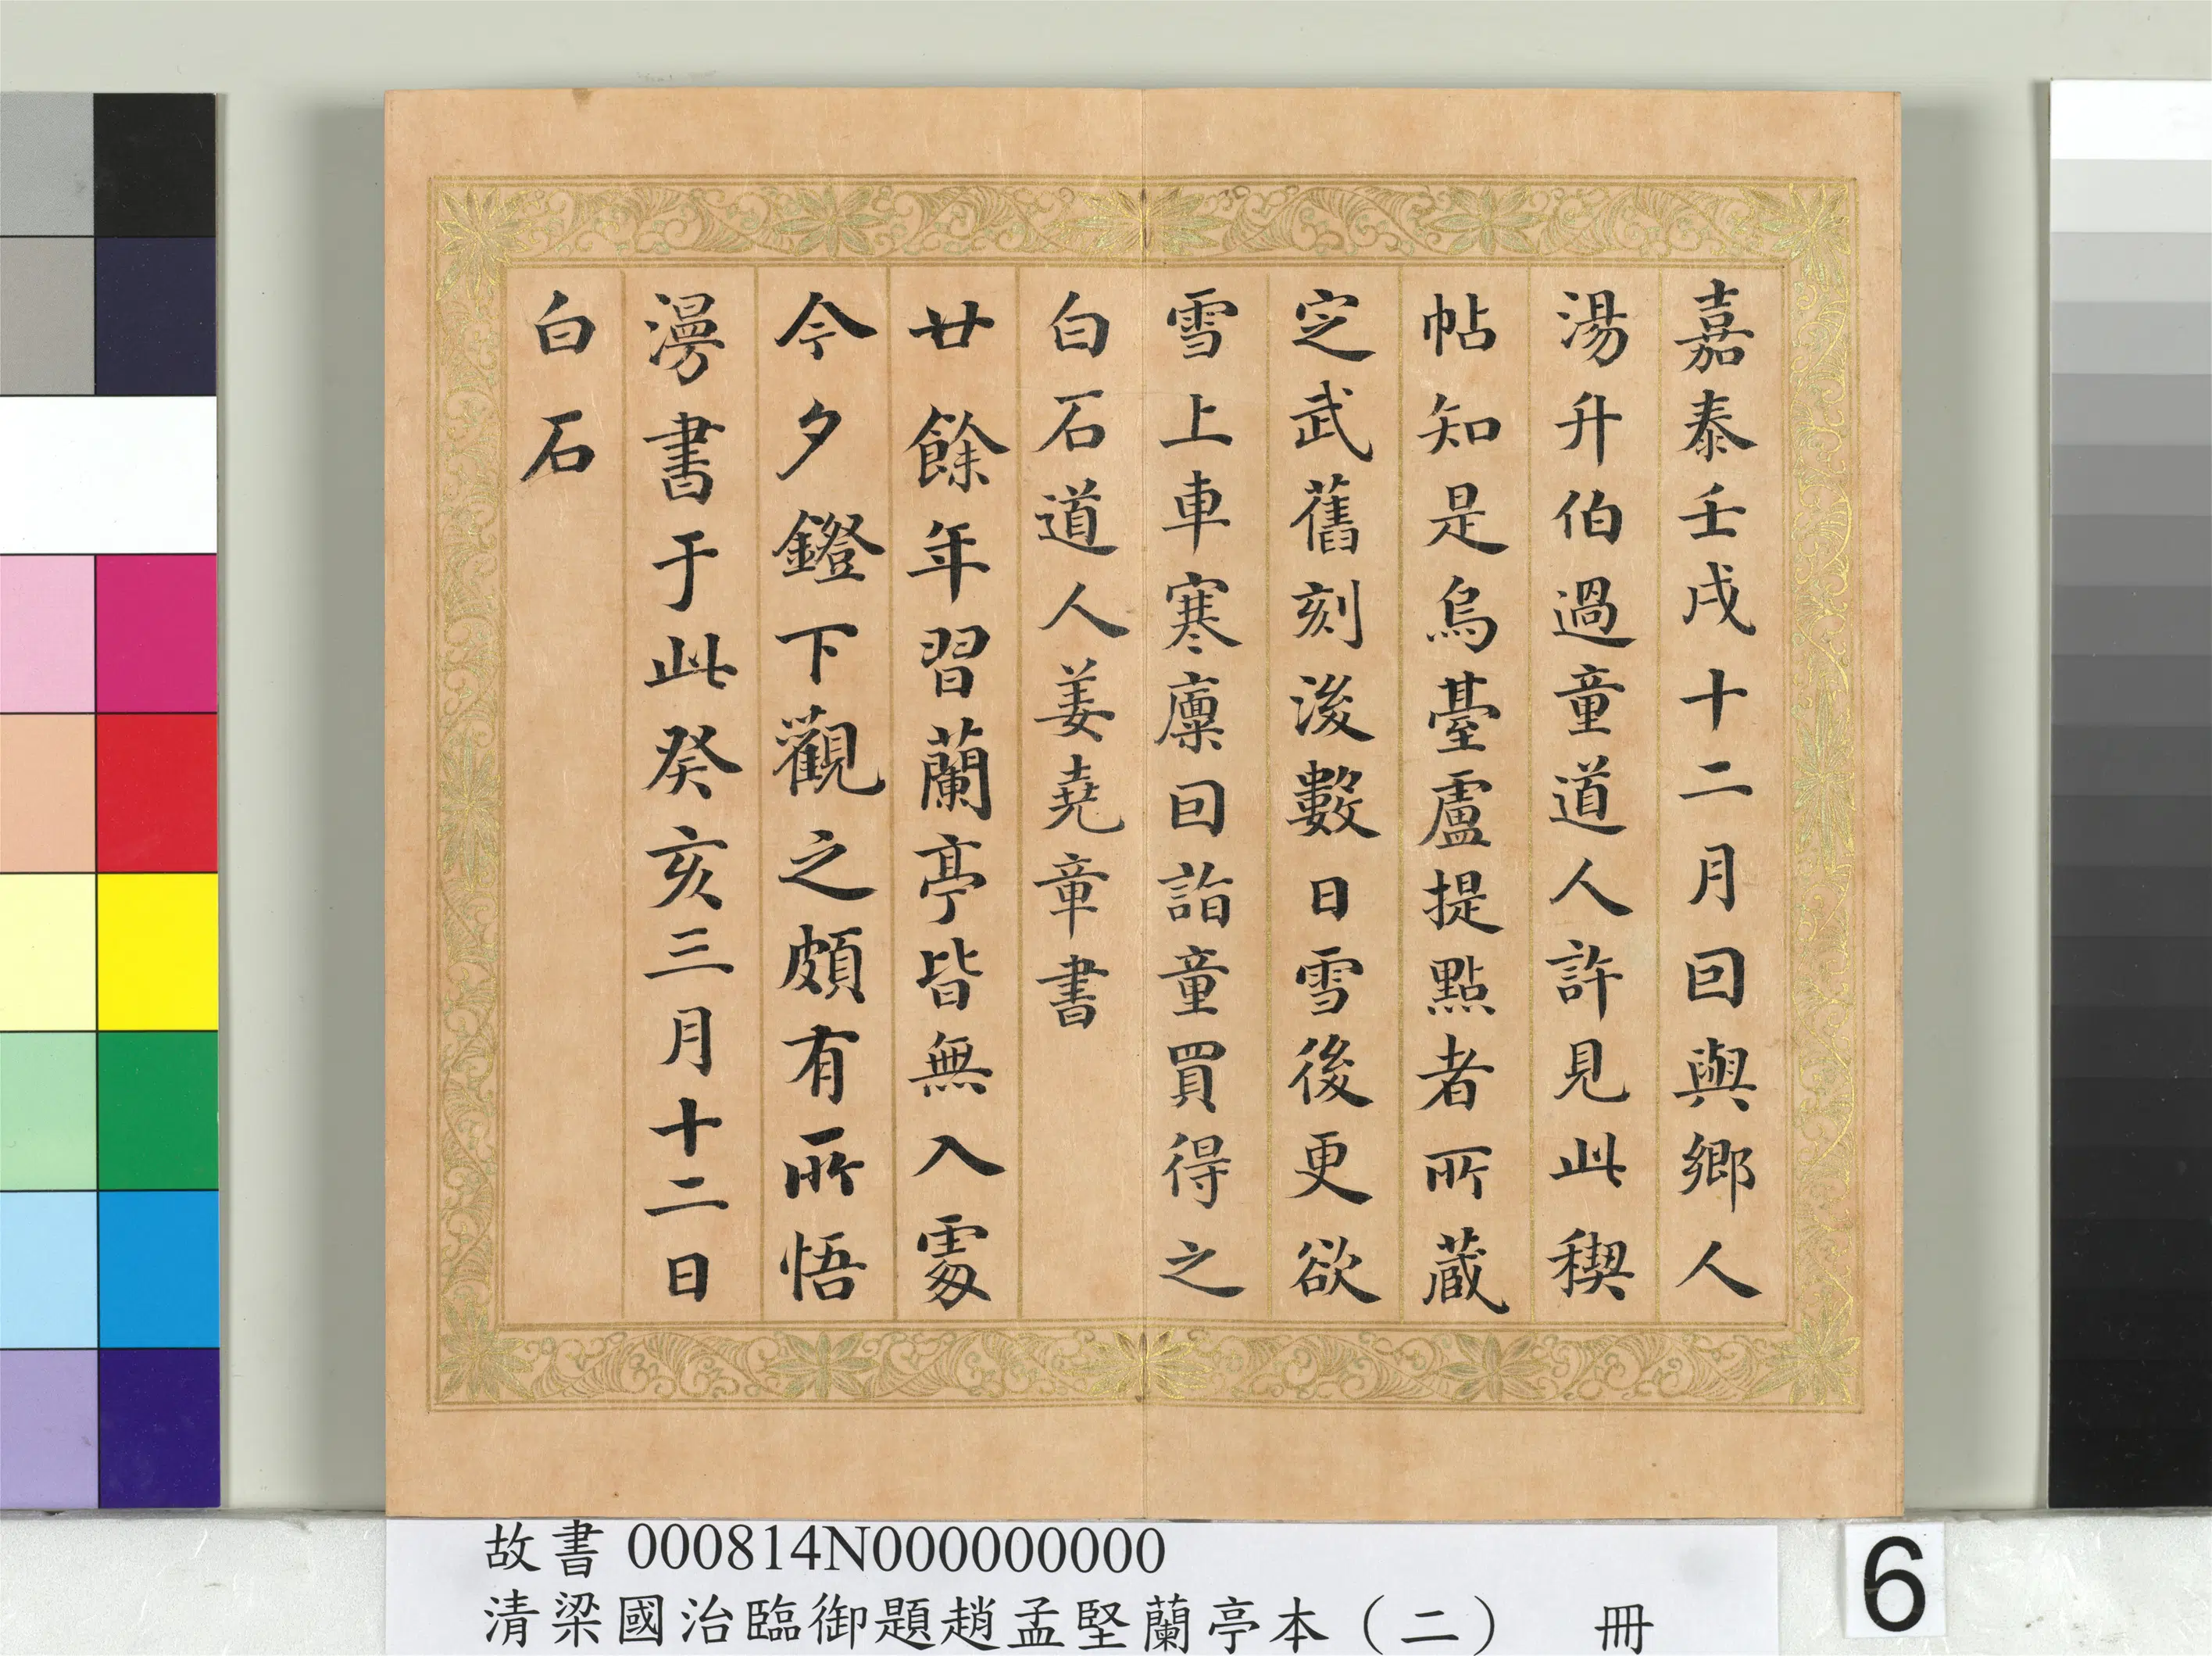 嘉泰壬戌十二月回與鄉人
湯升伯過童道人許見此稧
帖知是烏臺盧提點者所蔵
定武舊刻後數日雪後更欲
雪上車寒廩回詣童買得之
白石道人姜堯章書
廿餘年習蘭亭皆無入處
今夕鐙下觀之頗有所悟
漫書于此癸亥三月十二日
白石
故書 000814N000000000
清梁國治臨御題趙孟堅蘭亭本（二） 冊
6